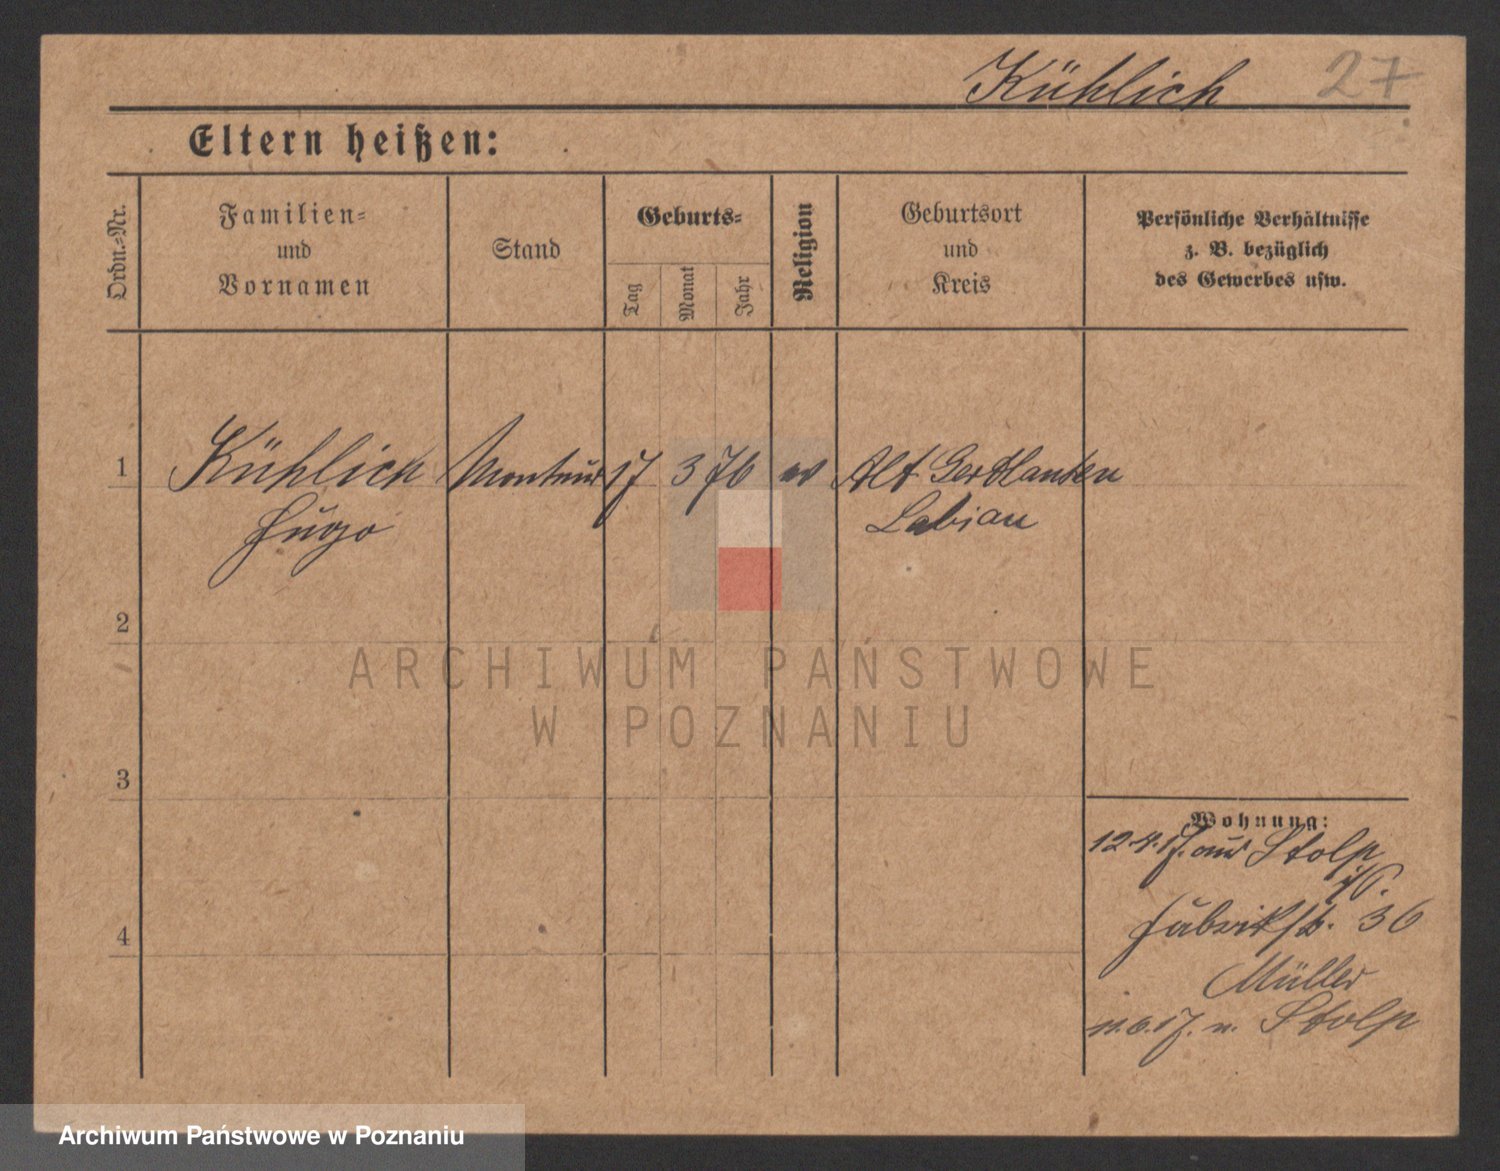 Kühlich 27
Eltern heißen:
Ordn.-Nr.
Familien-
und
Vornamen
Stand
Geburts-
Tag
Monat
Jahr
Religion
Geburtsort
und
Kreis
Persönliche Verhältnisse
z. B. bezüglich
des Gewerbes usw.
1 Kühlich Monteur 17 3 76 ev Alt
Hugo Labiau
2
3
4
Wohnung:
12.4.17. aus Stolp
i/P.
Fabrikstr. 36
Müller
11.6.17. n. Stolp
ARCHIWUM PAŃSTWOWE
W POZNANIU
Archiwum Państwowe w Poznaniu